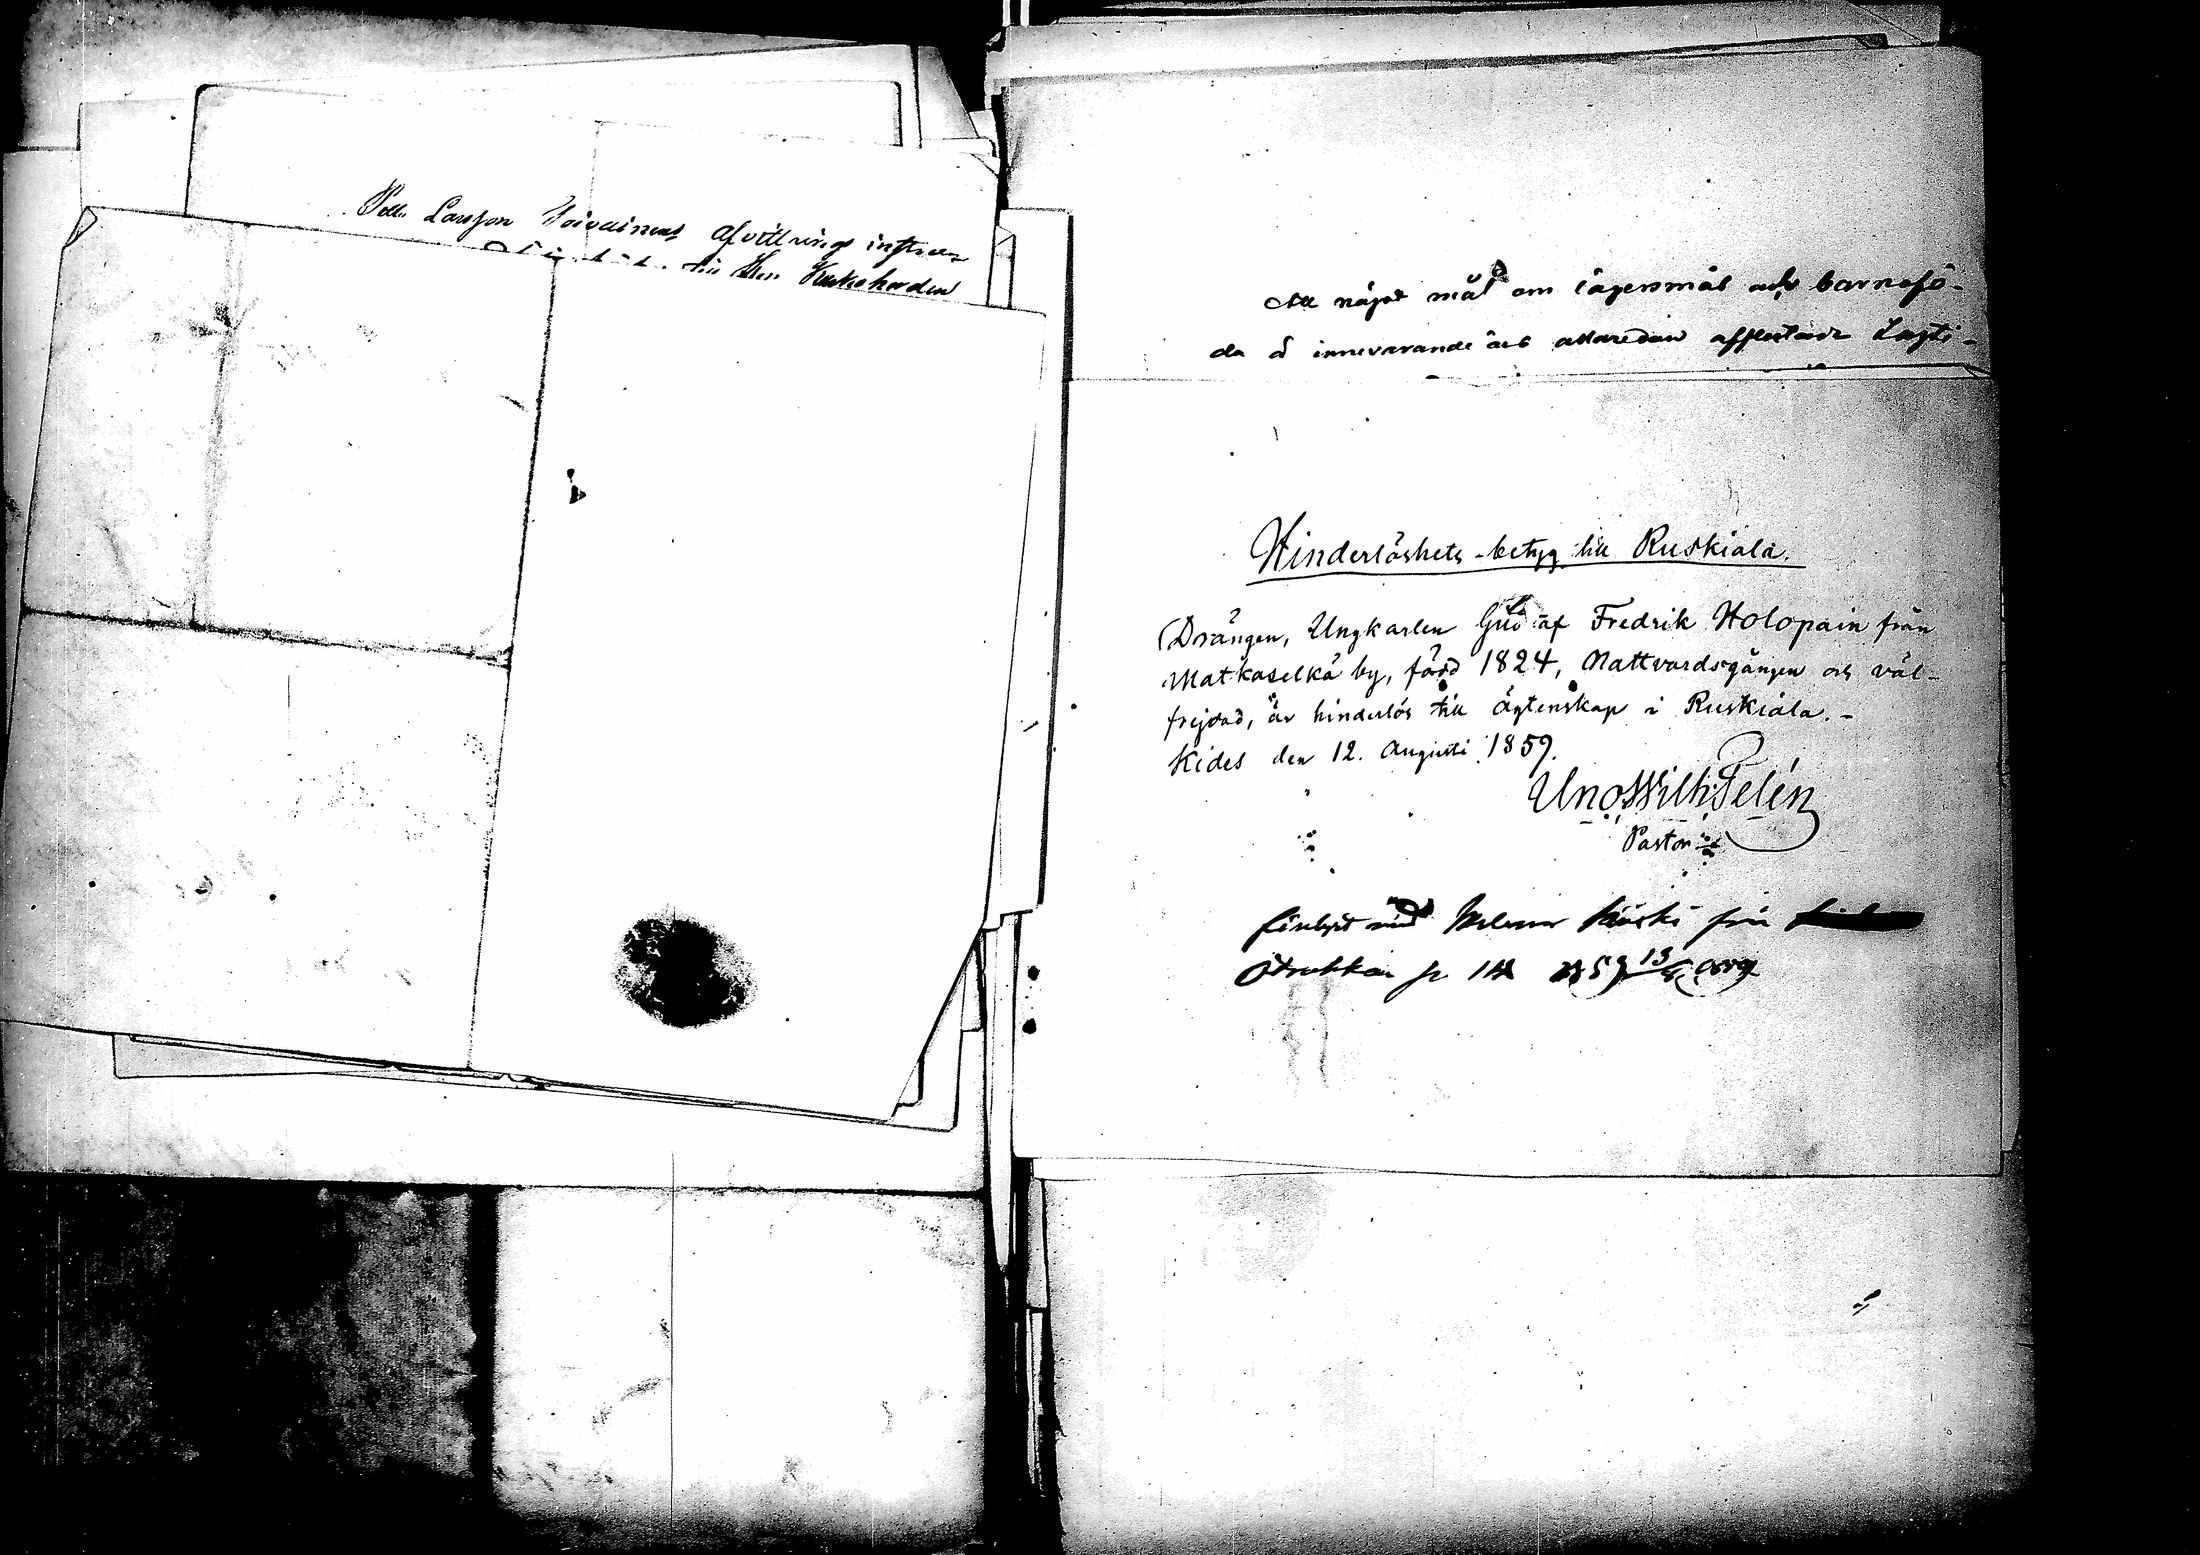 Pell. Larsson Toivainens Afvittrings instrum
till Herr Kyrkoherden
Att något mål om lägersmål och barnafö-
da å innevarande års allaredan afslutade Lagti-
Hinderlöshets-betyg till Ruskiala.
Drängen, Ungkarlen Gustaf Fredrik Holopain från
Matkaselkä by, född 1824, Nattvardsgången och väl-
frejdad, är hinderlös till ägtenskap i Ruskiala. -
Kides den 12. Augusti 1859.
Uno Wilh. Telén
Pastor
med Helena från